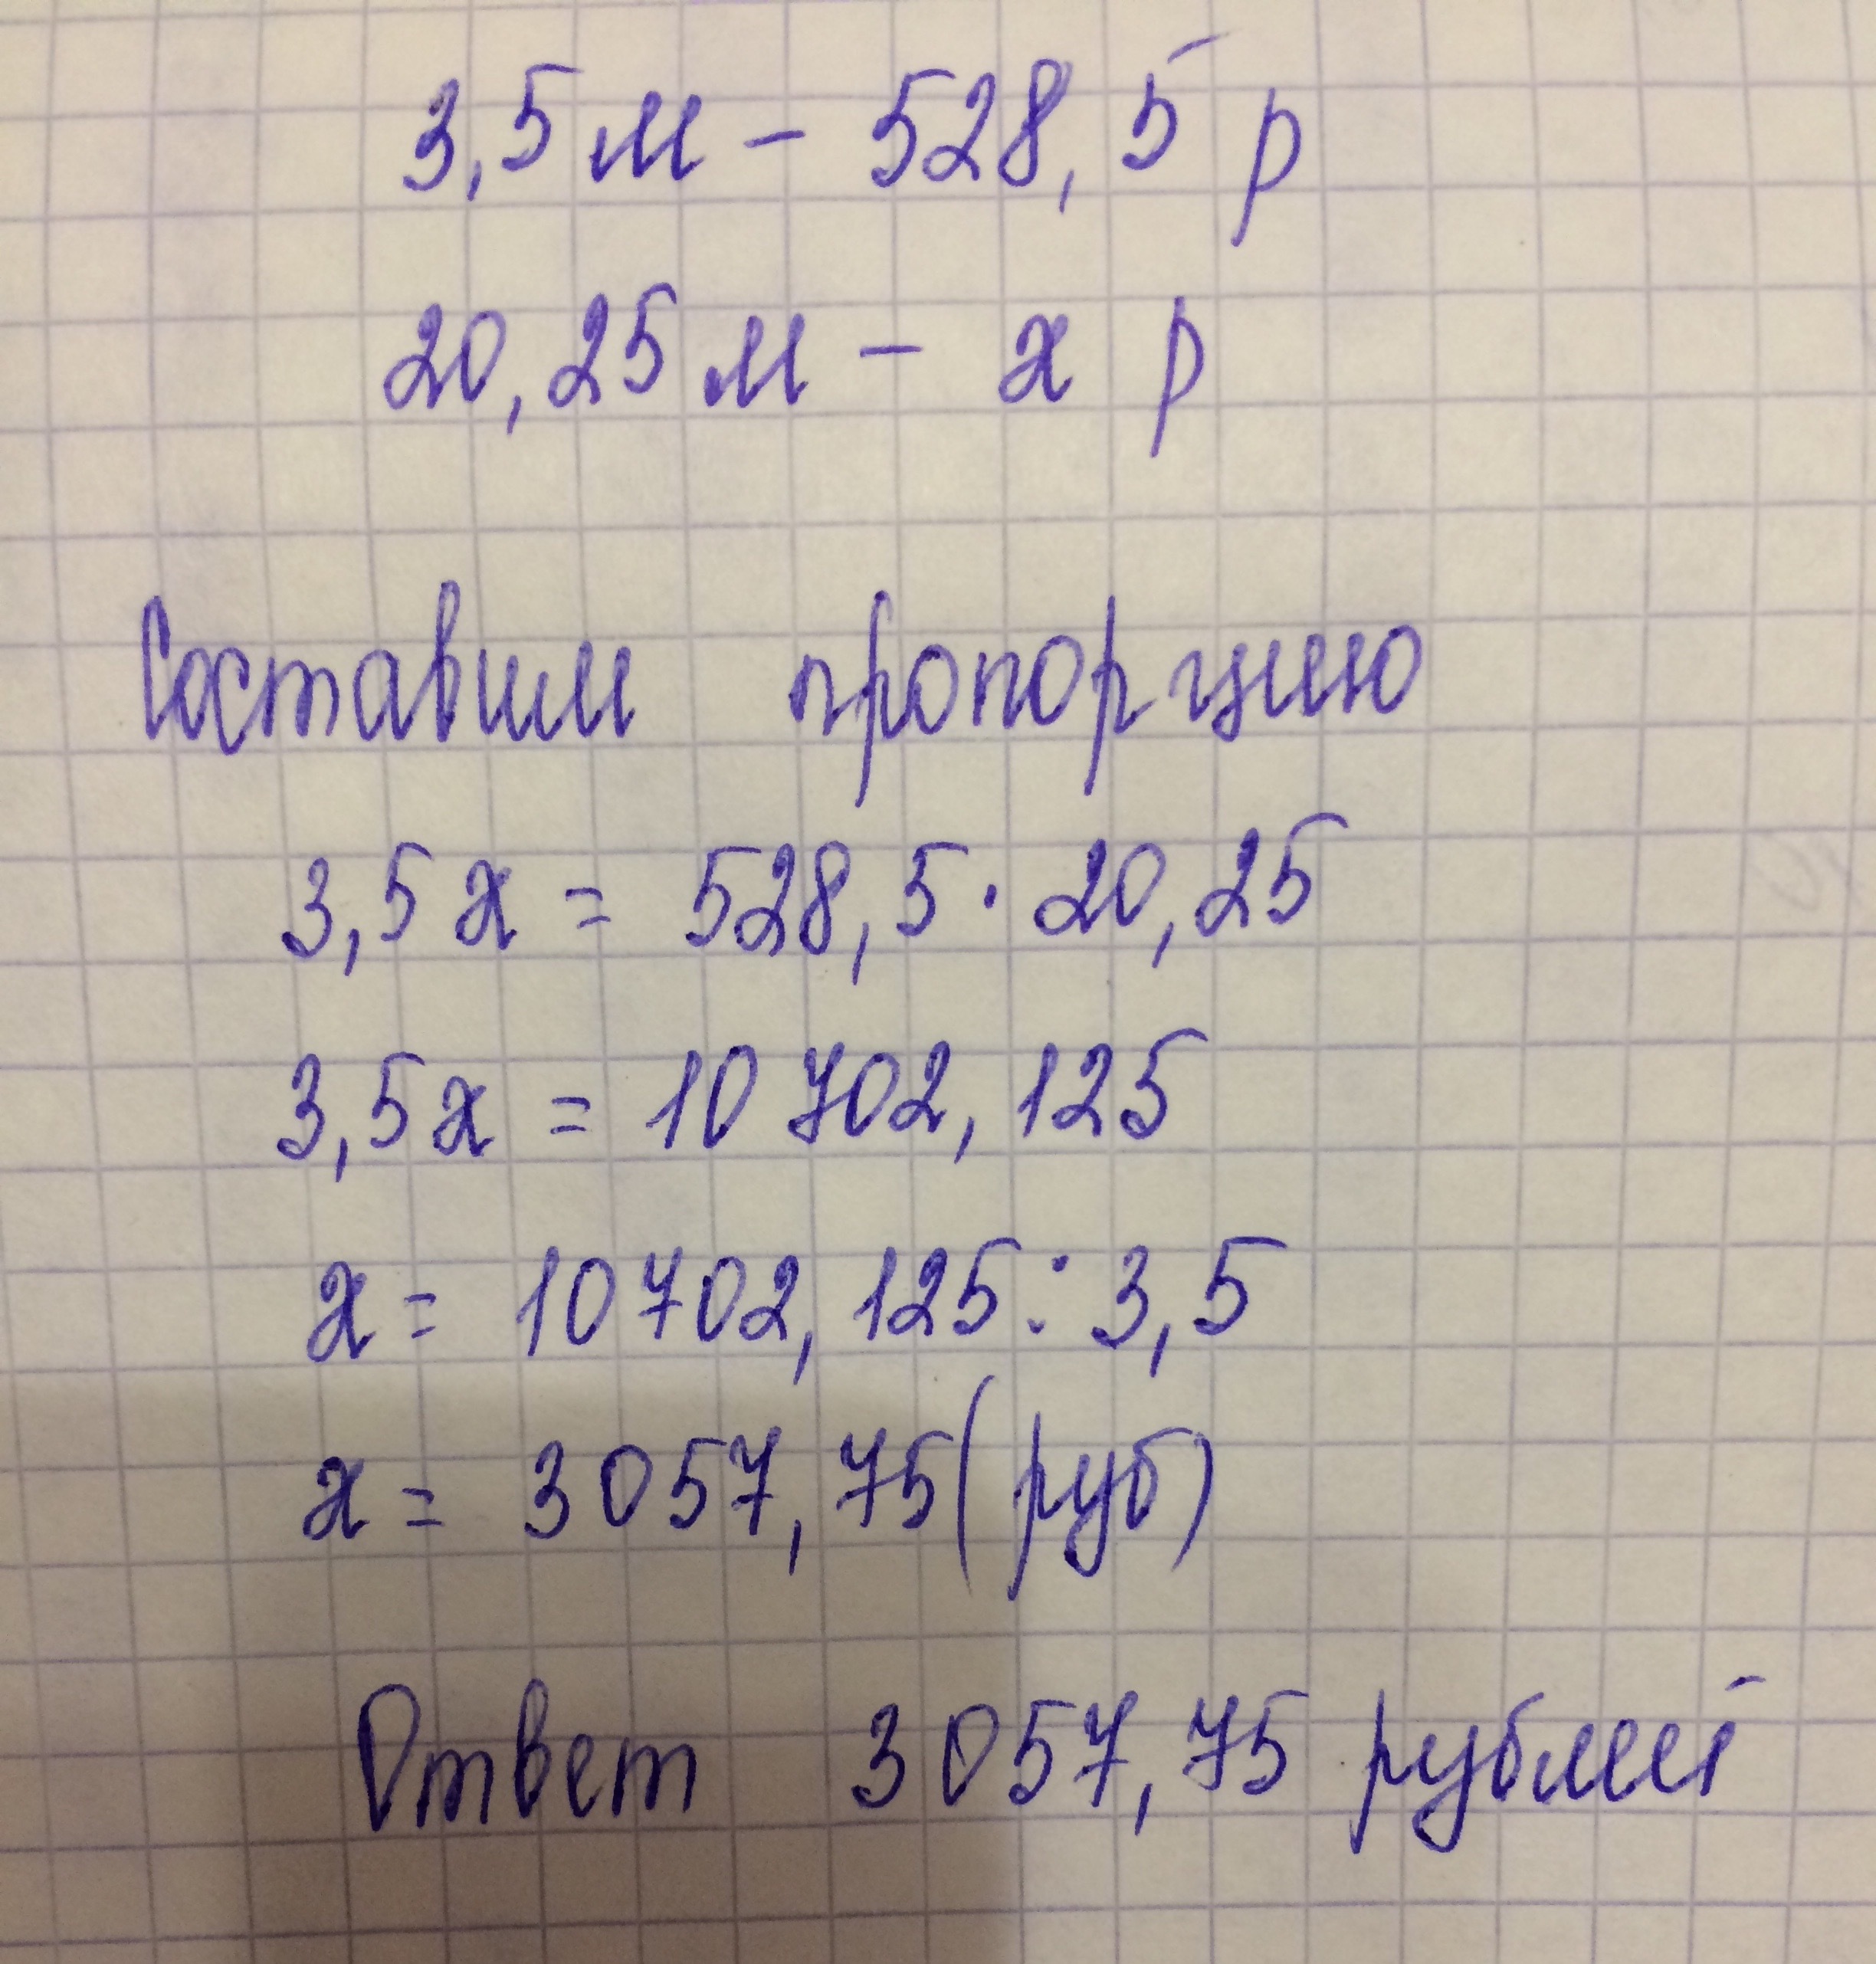 3,5 м - 528,5 р
20,25 м - х р
Составим пропорцию
3,5х = 528,5 · 20,25
3,5х = 10 702,125
х = 10 702,125 : 3,5
х = 3 057,75 (руб)
Ответ 3 057,75 рублей